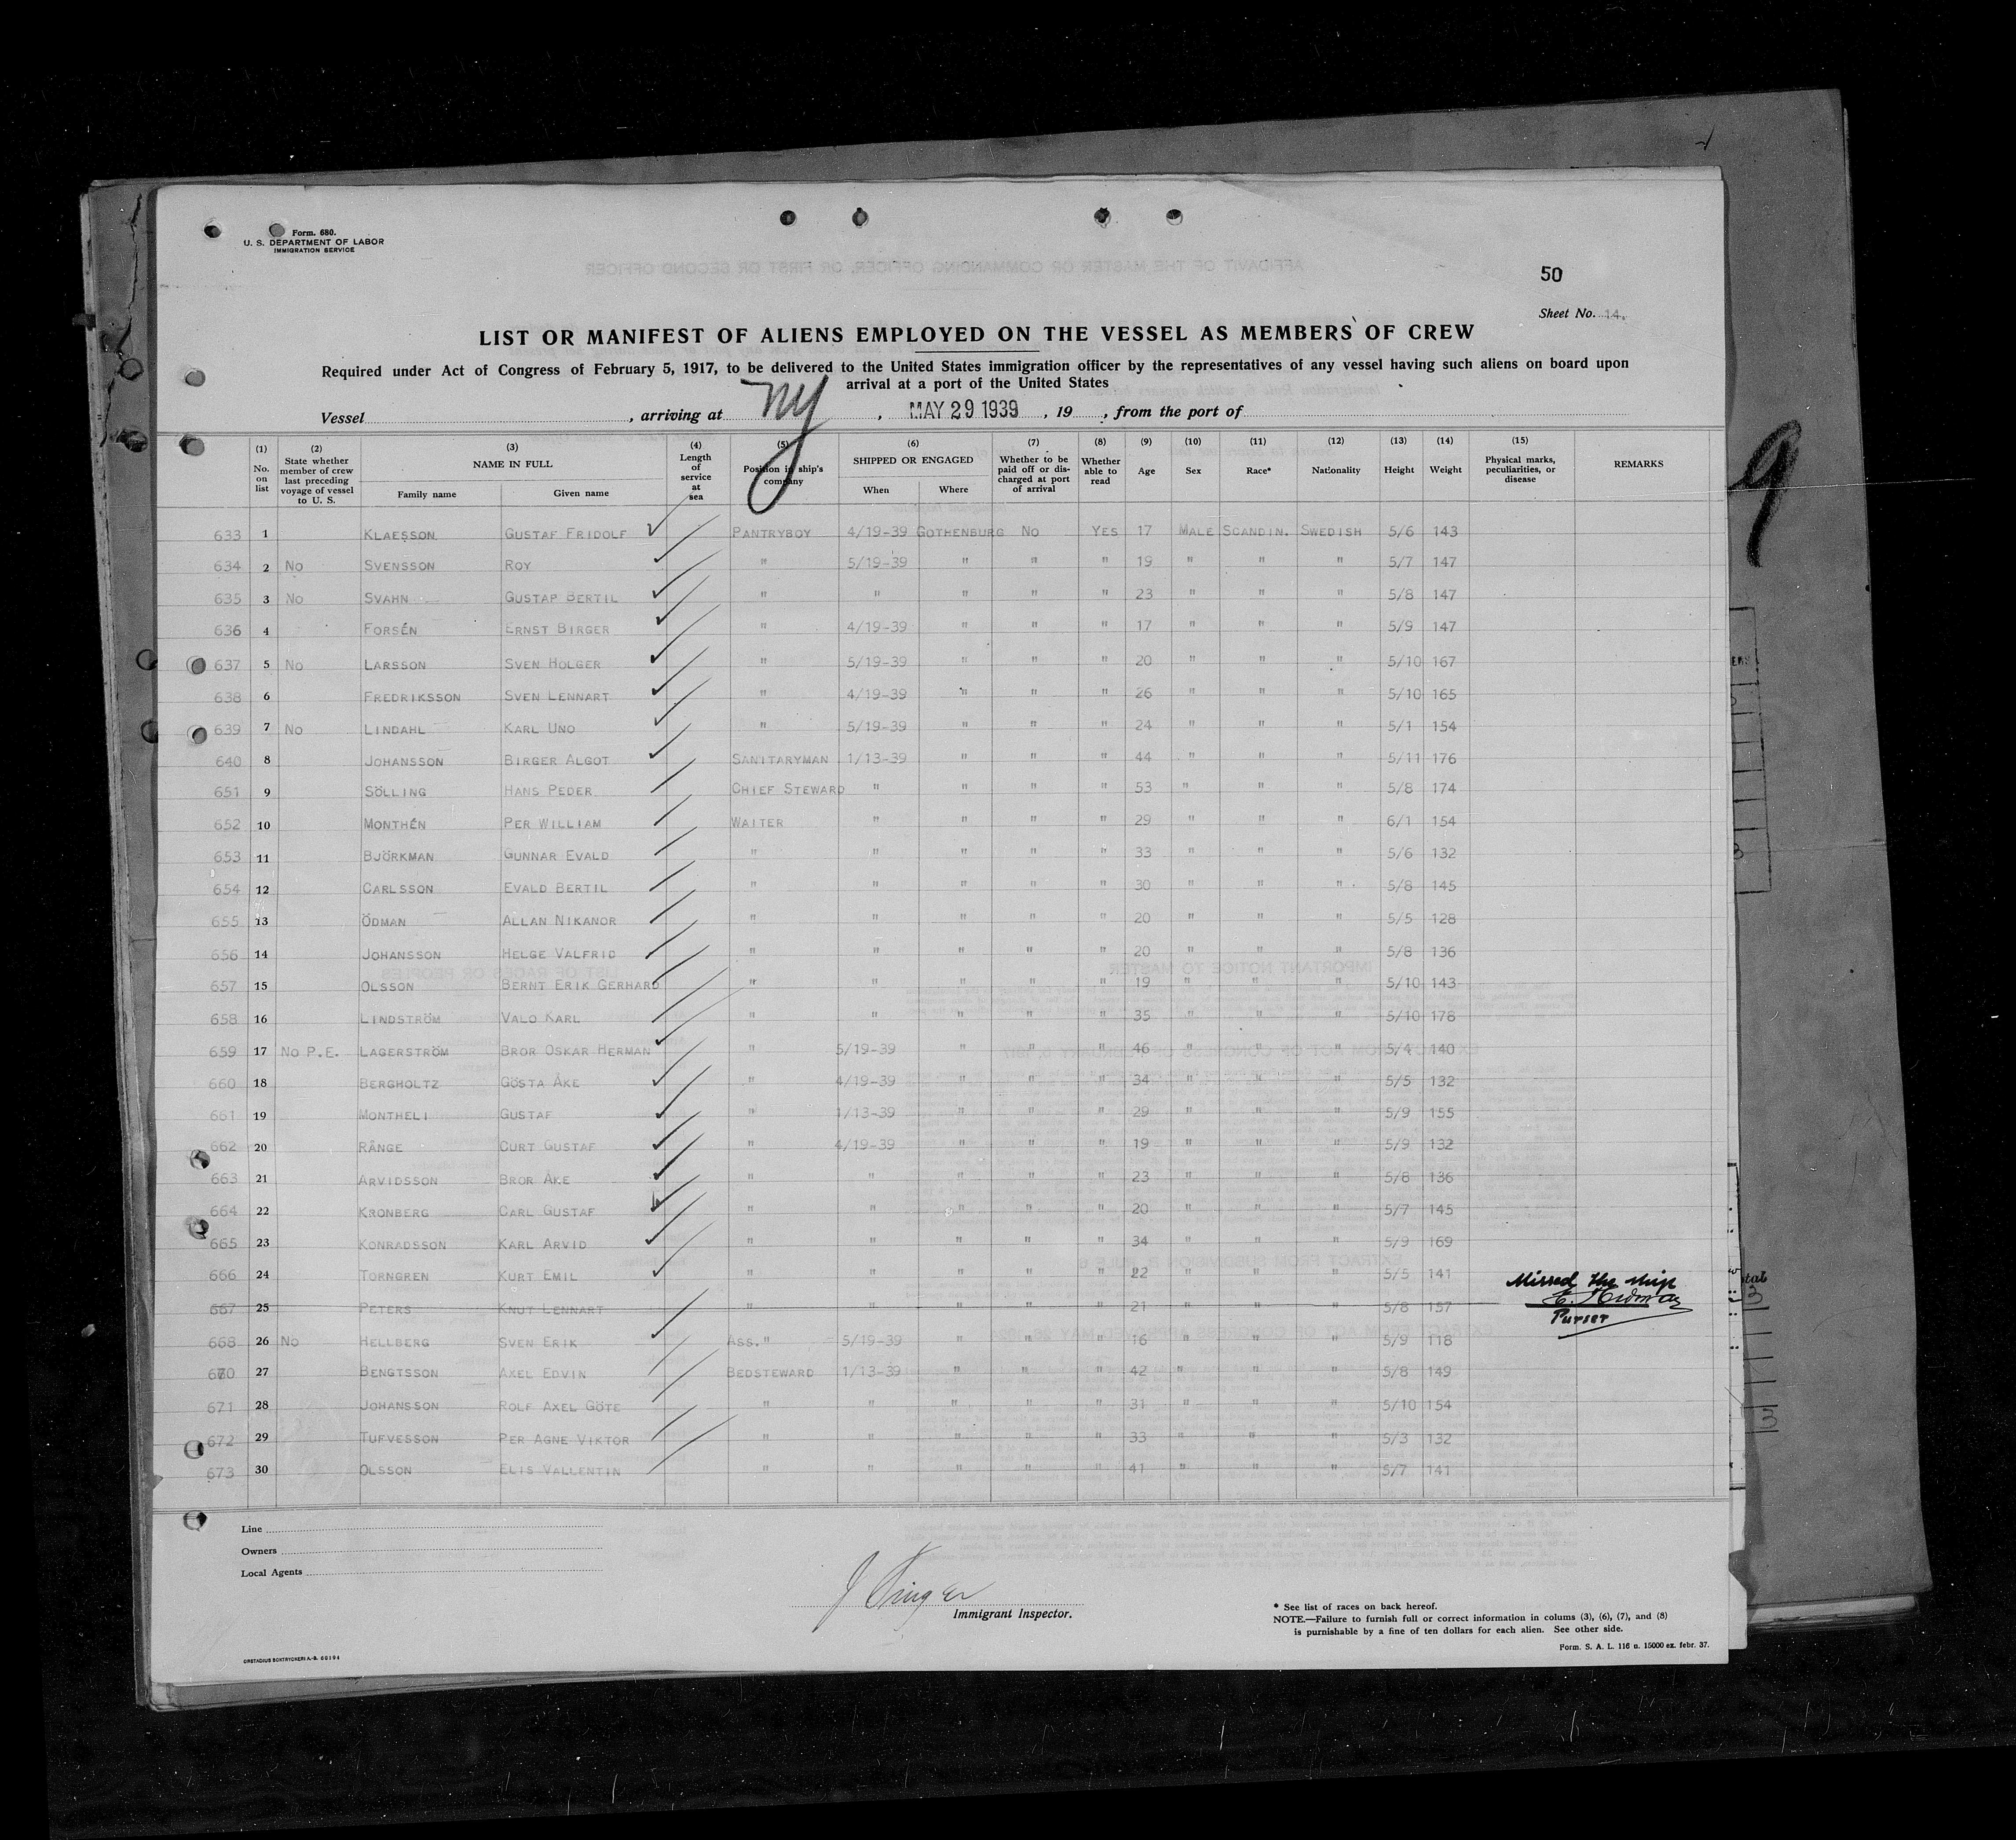 Form. 680.
U. S. DEPARTMENT OF LABOR
IMMIGRATION SERVICE
50
Sheet No. 14.
LIST OR MANIFEST OF ALIENS EMPLOYED ON THE VESSEL AS MEMBERS OF CREW
Required under Act of Congress of February 5, 1917, to be delivered to the United States immigration officer by the representatives of any vessel having such aliens on board upon
arrival at a port of the United States
Vessel , arriving at NY , MAY 29 1939 , 19 , from the port of
(1) No. on list (2) State whether member of crew last preceding voyage of vessel to U. S. (3) NAME IN FULL Family name Given name (4) Length of service at sea (5) Position in ship's company (6) SHIPPED OR ENGAGED When Where (7) Whether to be paid off or discharged at port of arrival (8) Whether able to read (9) Age (10) Sex (11) Race* (12) Nationality (13) Height (14) Weight (15) Physical marks, peculiarities, or disease REMARKS
633 1 KLAESSON GUSTAF FRIDOLF PANTRYBOY 4/19-39 GOTHENBURG NO YES 17 MALE SCANDIN. SWEDISH 5/6 143
634 2 NO SVENSSON ROY " 5/19-39 " " " 19 " " " 5/7 147
635 3 NO SVAHN GUSTAF BERTIL " " " " " 23 " " " 5/8 147
636 4 FORSÉN ERNST BIRGER " 4/19-39 " " " 17 " " " 5/9 147
637 5 NO LARSSON SVEN HOLGER " 5/19-39 " " " 20 " " " 5/10 167
638 6 FREDRIKSSON SVEN LENNART " 4/19-39 " " " 26 " " " 5/10 165
639 7 NO LINDAHL KARL UNO " 5/19-39 " " " 24 " " " 5/1 154
640 8 JOHANSSON BIRGER ALGOT SANITARYMAN 1/13-39 " " " 44 " " " 5/11 176
651 9 SÖLLING HANS PEDER CHIEF STEWARD " " " " 53 " " " 5/8 174
652 10 MONTHÉN PER WILLIAM WAITER " " " " 29 " " " 6/1 154
653 11 BJÖRKMAN GUNNAR EVALD " " " " " 33 " " " 5/6 132
654 12 CARLSSON EVALD BERTIL " " " " " 30 " " " 5/8 145
655 13 ÖDMAN ALLAN NIKANOR " " " " " 20 " " " 5/5 128
656 14 JOHANSSON HELGE VALFRID " " " " " 20 " " " 5/8 136
657 15 OLSSON BERNT ERIK GERHARD " " " " " 19 " " " 5/10 143
658 16 LINDSTRÖM VALD KARL " " " " " 35 " " " 5/10 178
659 17 NO P.E. LAGERSTRÖM BROR OSKAR HERMAN " 5/19-39 " " " 46 " " " 5/4 140
660 18 BERGHOLTZ GÖSTA ÅKE " 4/19-39 " " " 34 " " " 5/5 132
661 19 MONTHELI GUSTAF " 1/13-39 " " " 29 " " " 5/9 155
662 20 RÅNGE CURT GUSTAF " 4/19-39 " " " 19 " " " 5/9 132
663 21 ARVIDSSON BROR ÅKE " " " " " 23 " " " 5/8 136
664 22 KRONBERG CARL GUSTAF " " " " " 20 " " " 5/7 145
665 23 KONRADSSON KARL ARVID " " " " " 34 " " " 5/9 169
666 24 TORNGREN KURT EMIL " " " " " 22 " " " 5/5 141
Missed the ship
667 25 PETERS KNUT LENNART " " " " " 21 " " " 5/8 157
Purser
668 26 NO HELLBERG SVEN ERIK ASS. " 5/19-39 " " " 16 " " " 5/9 118
670 27 BENGTSSON AXEL EDVIN BEDSTEWARD 1/13-39 " " " 42 " " " 5/8 149
671 28 JOHANSSON ROLF AXEL GÖTE " " " " " 31 " " " 5/10 154
672 29 TUFVESSON PER AGNE VIKTOR " " " " " 33 " " " 5/3 132
673 30 OLSSON ELIS VALLENTIN " " " " " 41 " " " 5/7 141
Line
Owners
Local Agents
Immigrant Inspector.
* See list of races on back hereof.
NOTE.—Failure to furnish full or correct information in colums (3), (6), (7), and (8)
is punishable by a fine of ten dollars for each alien. See other side.
Form. S. A. L. 116 u. 15000 ex. febr. 37.